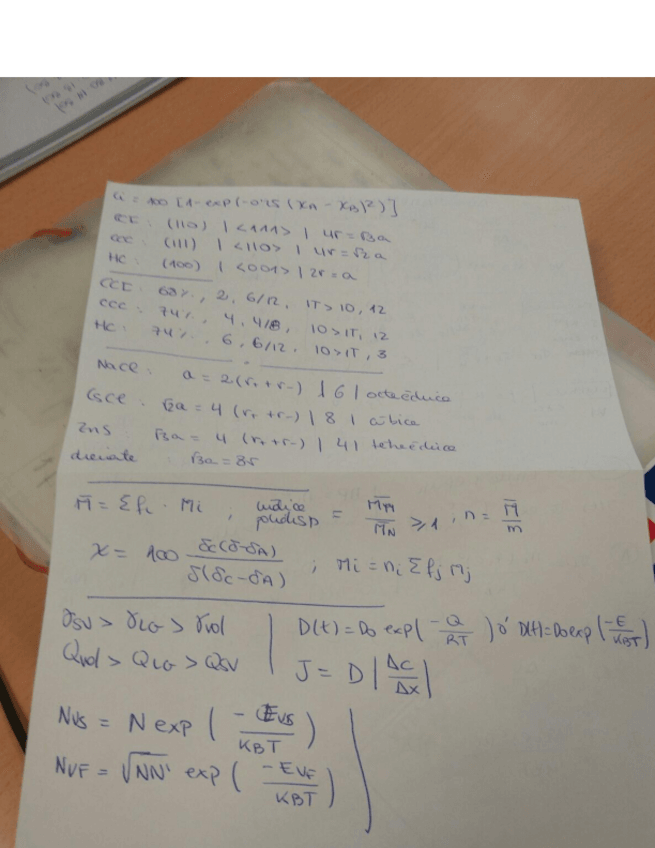 = 100 [1-exp(-0'25 (XA - XB)²)]
(110) | <111> | 4r = √3a
CCC : (111) | <110> | 4r = √2 a
HC : (100) | <001> | 2r = a
CCI : 68%, 2, 6/12, IT > IO, 12
CCC : 74%, 4, 4/8, IO > IT, 12
HC : 74%, 6, 6/12, IO > IT, 8
NaCl : a = 2(r+ + r-) | 6 | octaédrica
CsCl : √3a = 4 (r+ + r-) | 8 | cúbica
ZnS √3a = 4 (r+ + r-) | 4 | tetraédrica
diamante : √3a = 8r
M̄ = Σfi · Mi ; índice polidisp = M̄M / M̄N ≥ 1, n = M̄ / m
X = 100 δc(δ-δA) / δ(δc-δA) ; Mi = ni Σ fj Mj
γSV > γLG > γvol | D(t) = Do exp(-Q / RT) ó D(t) = Do exp(-E / KBT)
Qvol > QLG > QSV | J = D |Δc / Δx|
NVS = N exp ( -EVS / KBT )
NVF = √NN' exp ( -EVF / KBT )